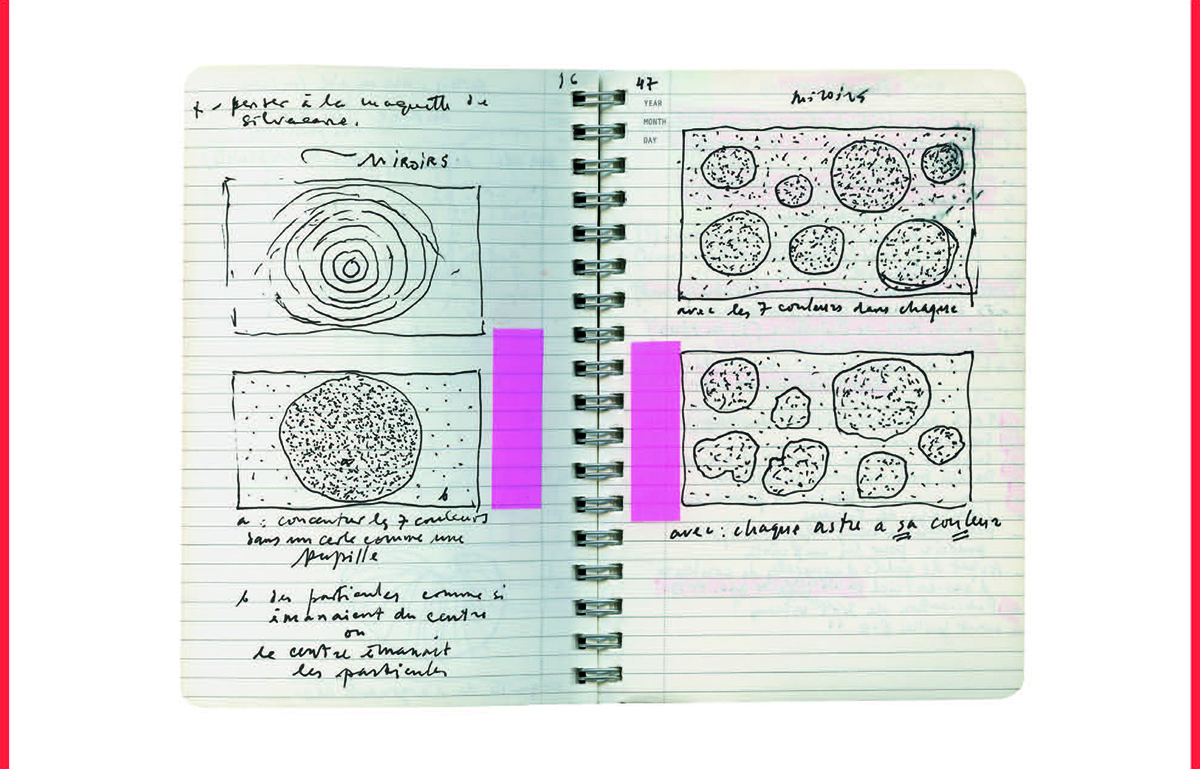 16
x - penser à la maquette de
silvacane.
MIROIRS
a
b
a : concentrer les 7 couleurs
dans un cercle comme une
pupille
b des particules comme si
émanaient du centre
ou
le centre émanait
les particules
47
YEAR
MONTH
DAY
miroirs
avec les 7 couleurs dans chaque
avec : chaque astre a sa couleur